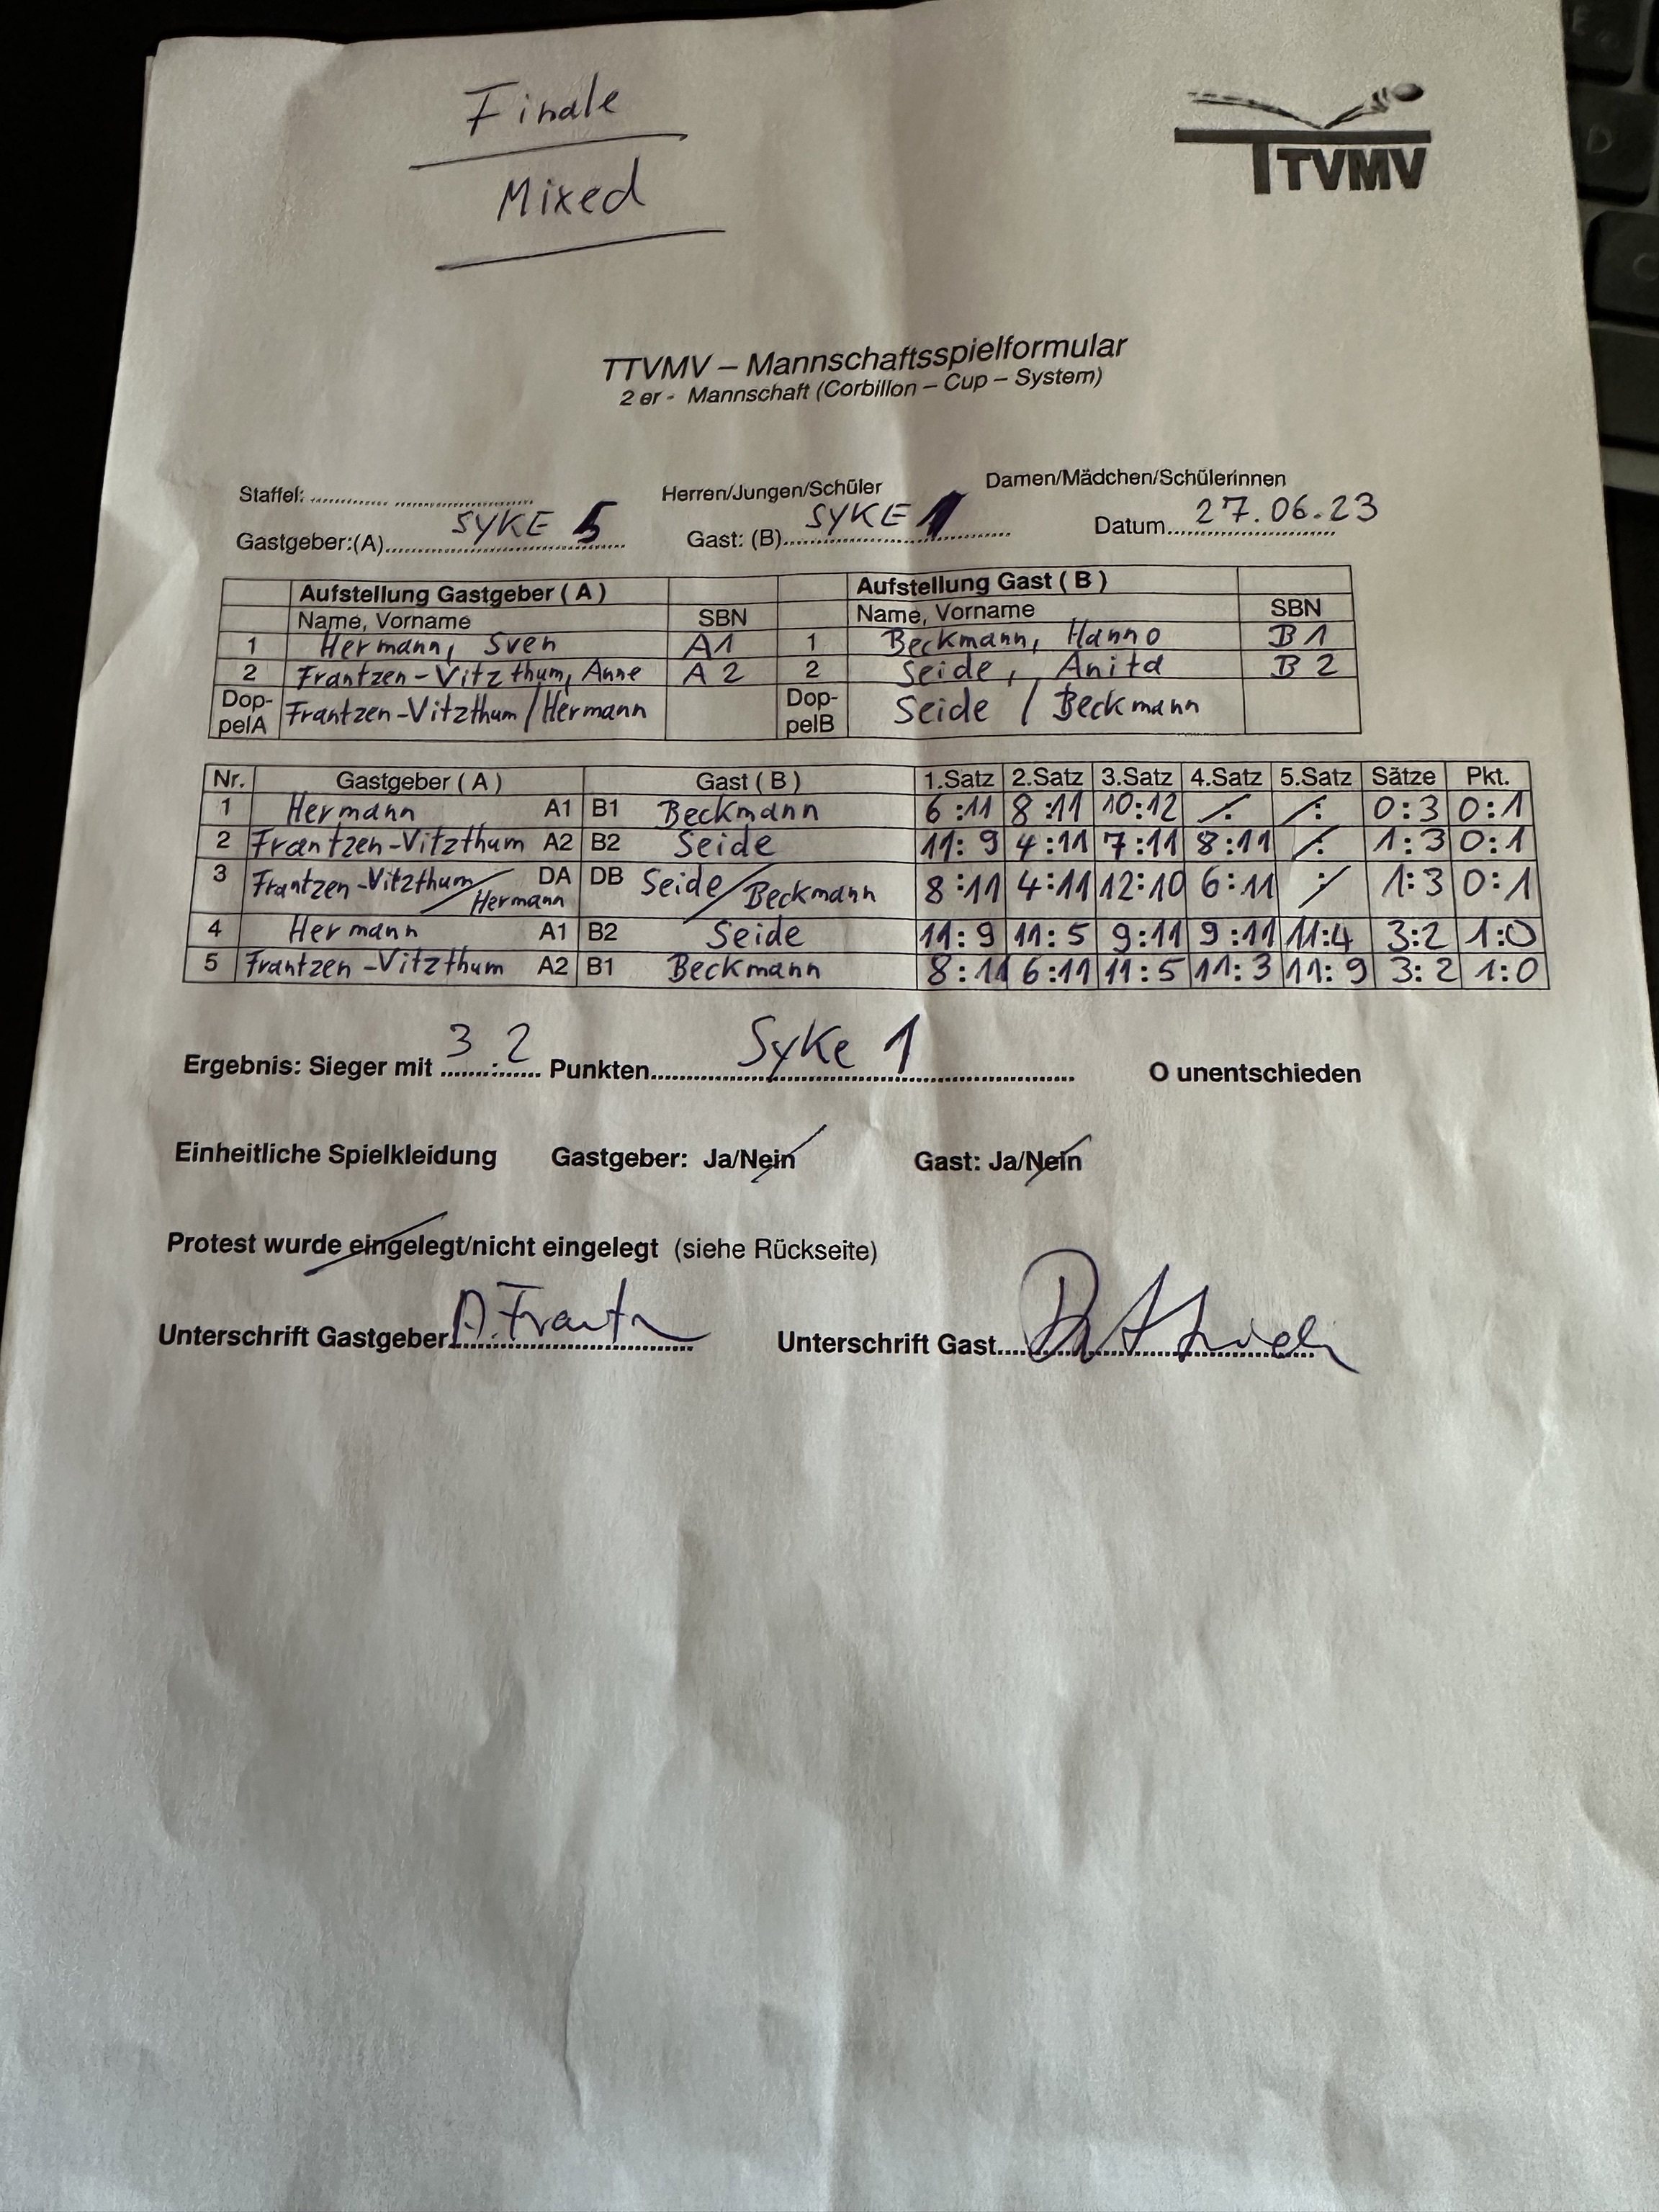 Finale
Mixed
TTVMV
TTVMV – Mannschaftsspielformular
2 er - Mannschaft (Corbillon – Cup – System)
Staffel: Herren/Jungen/Schüler Damen/Mädchen/Schülerinnen
Gastgeber:(A) SYKE 5 Gast: (B) SYKE 1 Datum 27.06.23
Aufstellung Gastgeber ( A ) Aufstellung Gast ( B )
Name, Vorname SBN Name, Vorname SBN
1 Hermann, Sven A1 1 Beckmann, Hanno B1
2 Frantzen-Vitzthum, Anne A2 2 Seide, Anita B2
Dop-
pelA Frantzen-Vitzthum/Hermann Dop-
pelB Seide / Beckmann
Nr. Gastgeber ( A ) Gast ( B ) 1.Satz 2.Satz 3.Satz 4.Satz 5.Satz Sätze Pkt.
1 Hermann A1 B1 Beckmann 6:11 8:11 10:12 : : 0:3 0:1
2 Frantzen-Vitzthum A2 B2 Seide 11:9 4:11 7:11 8:11 : 1:3 0:1
3 Frantzen-Vitzthum/Hermann DA DB Seide/Beckmann 8:11 4:11 12:10 6:11 : 1:3 0:1
4 Hermann A1 B2 Seide 11:9 11:5 9:11 9:11 11:4 3:2 1:0
5 Frantzen-Vitzthum A2 B1 Beckmann 8:11 6:11 11:5 11:3 11:9 3:2 1:0
Ergebnis: Sieger mit 3:2 Punkten Syke 1 O unentschieden
Einheitliche Spielkleidung Gastgeber: Ja/Nein Gast: Ja/Nein
Protest wurde eingelegt/nicht eingelegt (siehe Rückseite)
Unterschrift Gastgeber A. Frantz Unterschrift Gast